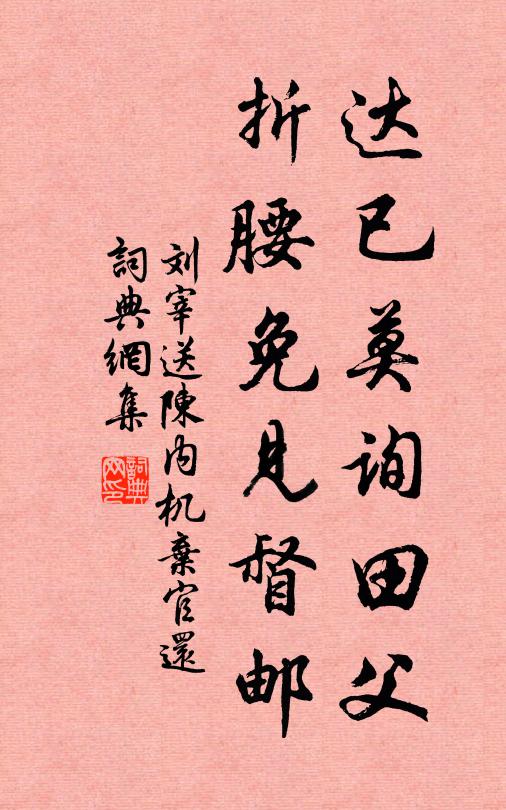 达已莫询田父
折腰免见督邮
刘宰送陳内机棄官還
詞典網集
詞典网印